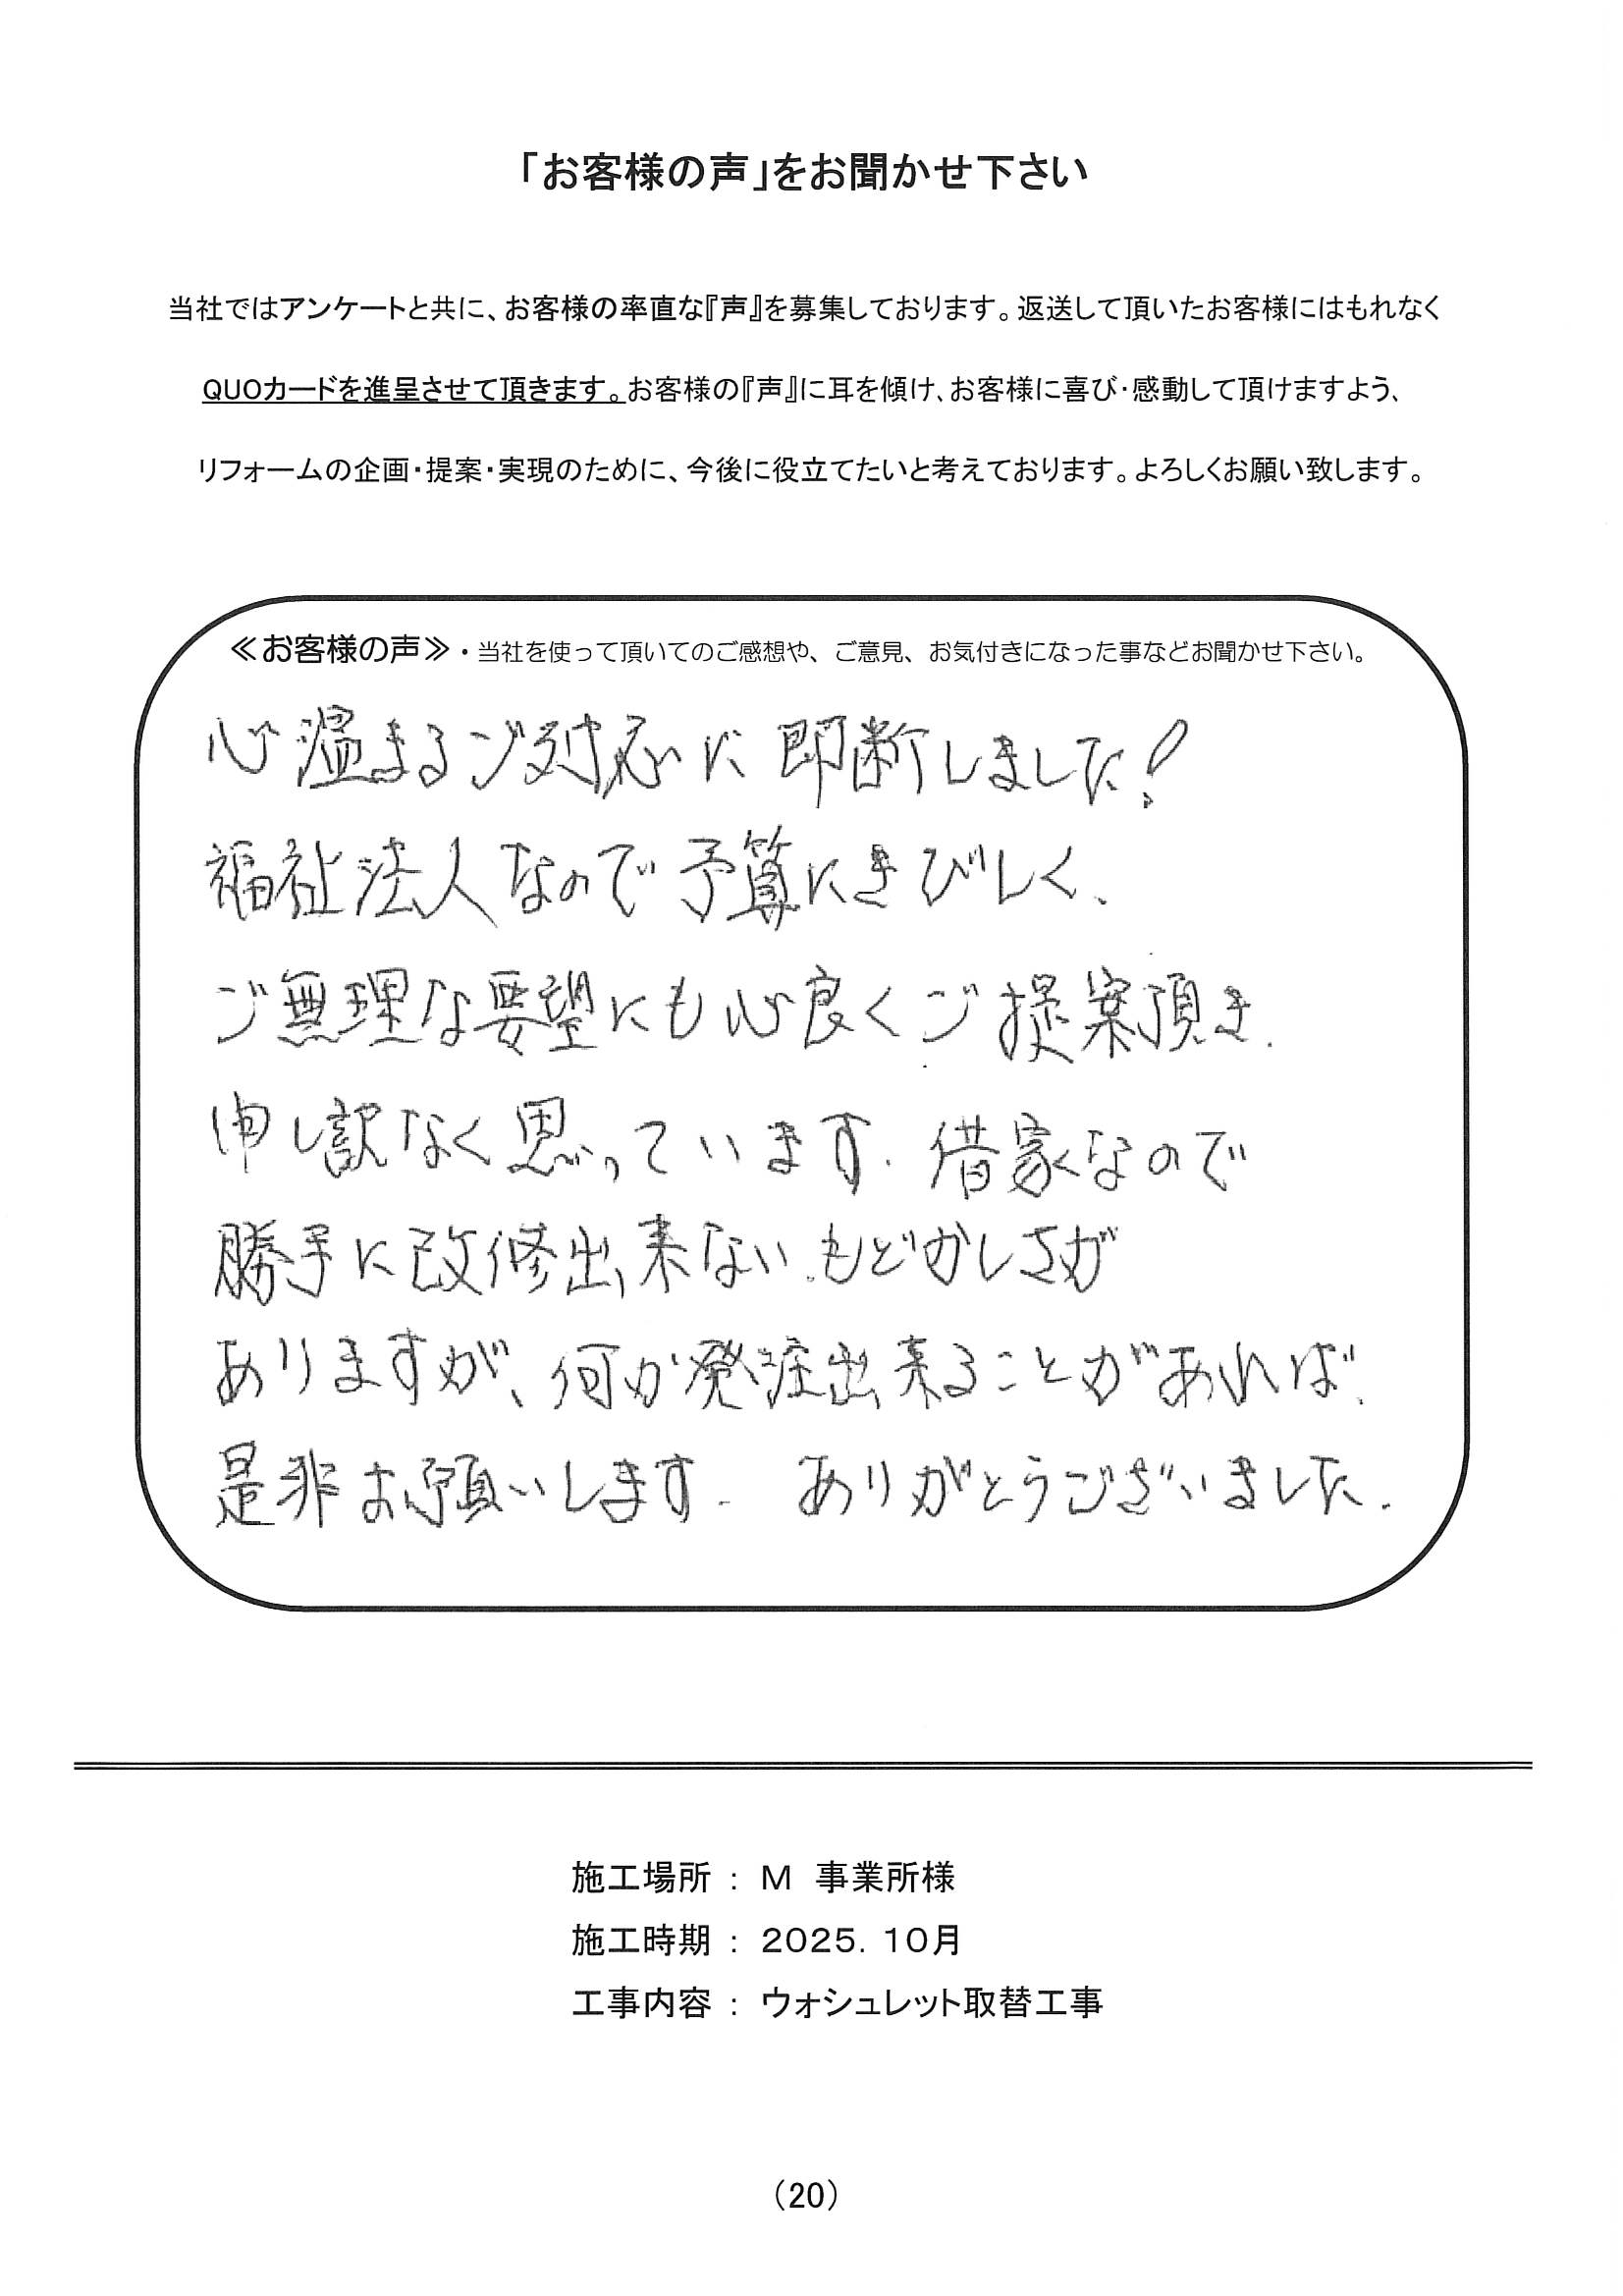 「お客様の声」をお聞かせ下さい
当社ではアンケートと共に、お客様の率直な『声』を募集しております。返送して頂いたお客様にはもれなく
QUOカードを進呈させて頂きます。お客様の『声』に耳を傾け、お客様に喜び・感動して頂けますよう、
リフォームの企画・提案・実現のために、今後に役立てたいと考えております。よろしくお願い致します。
≪お客様の声≫・当社を使って頂いてのご感想や、ご意見、お気付きになった事などお聞かせ下さい。
心温まるご対応に即断しました!
福祉法人なので予算にきびしく、
ご無理な要望にも心良くご提案頂き、
申し訳なく思っています。借家なので
勝手に改修出来ないもどかしさが
ありますが、何か発注出来ることがあれば、
是非お願いします。 ありがとうございました。
施工場所 : M 事業所様
施工時期 : 2025.10月
工事内容 : ウォシュレット取替工事
(20)